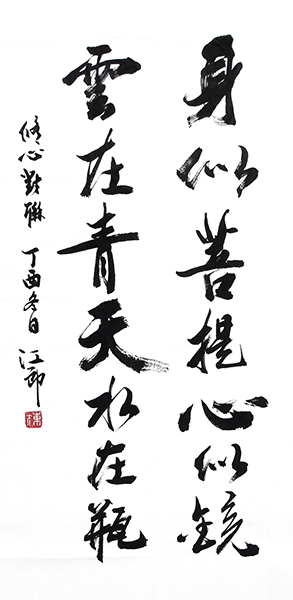 身似菩提心似鏡
雲在青天水在瓶
修心對聯 丁酉冬日 江郎